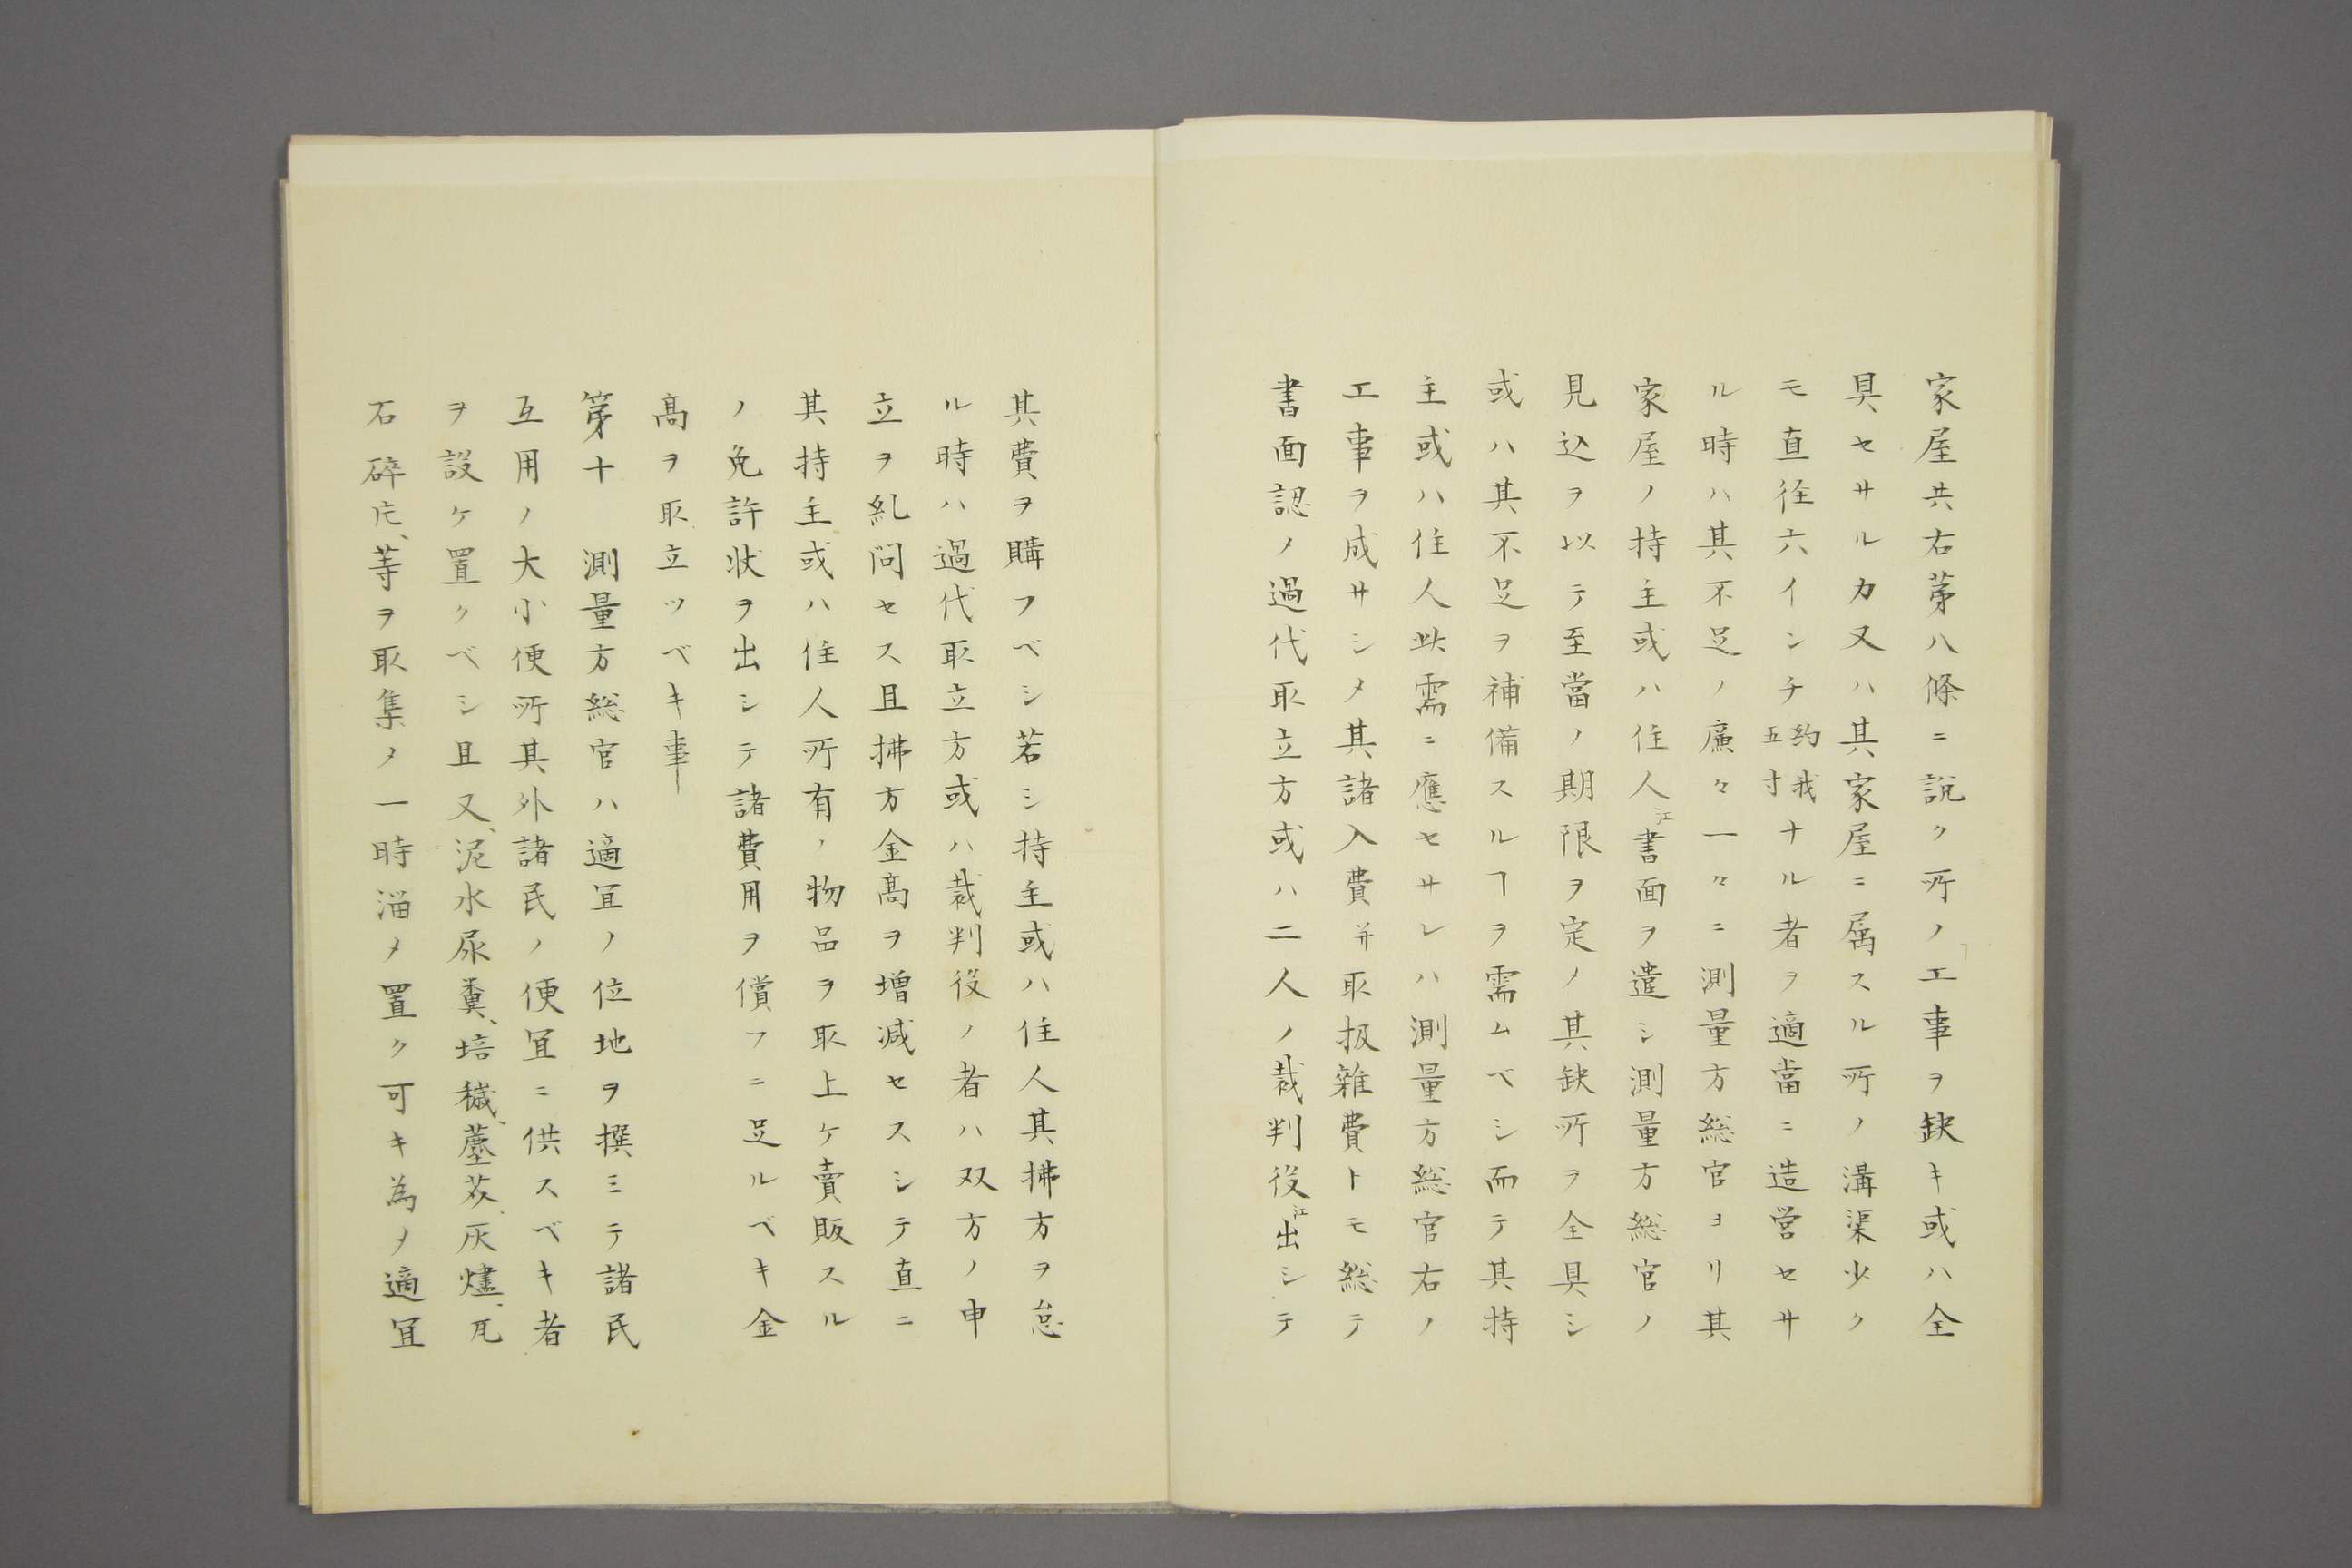 家屋共右茅八條ニ說ク所ノ工事ヲ缺キ或ハ全
具セサルカ又ハ其家屋ニ属スル所ノ溝渠少ク
モ直径六インチ約我五寸ナル者ヲ適當ニ造営セサ
ル時ハ其不足ノ廉々一々ニ測量方総官ヨリ其
家屋ノ持主或ハ住人江書面ヲ遣シ測量方総官ノ
見込ヲ以テ至當ノ期限ヲ定メ其缺所ヲ全具シ
或ハ其不足ヲ補備スルヿヲ需ムベシ而テ其持
主或ハ住人此需ニ應セサレハ測量方総官右ノ
工事ヲ成サシメ其諸入費并取扱雜費トモ総テ
書面認メ過代取立方或ハ二人ノ裁判役江出シテ
其費ヲ購フベシ若シ持主或ハ住人其拂方ヲ怠
ル時ハ過代取立方或ハ裁判役ノ者ハ双方ノ申
立ヲ糺問セス且拂方金高ヲ増减セスシテ直ニ
其持主或ハ住人所有ノ物品ヲ取上ケ賣販スル
ノ免許状ヲ出シテ諸費用ヲ償フニ足ルベキ金
髙ヲ取立ツベキ事
第十　測量方総官ハ適冝ノ位地ヲ撰ミテ諸民
互用ノ大小便所其外諸民ノ便冝ニ供スベキ者
ヲ設ケ置クベシ且又、泥水尿糞、培穢、塵芥、灰燼、瓦
石碎片、等ヲ取集メ一時溜メ置ク可キ為メ適冝